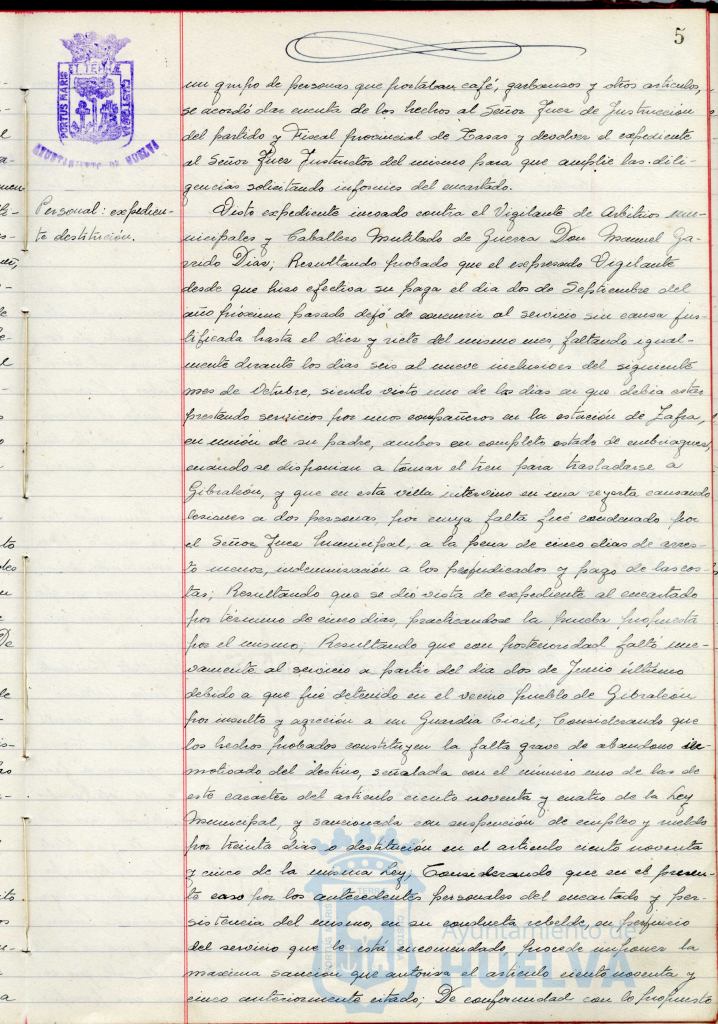 5
PORTUS MARIS ET TERRÆ CUSTODIA
AYUNTAMIENTO DE HUELVA
Personal: expedien-
te destitución.
un grupo de personas que portaban café, garbansos y otros artículos,
se acordó dar cuenta de los hechos al Señor Juez de Instrucción
del partido y Fiscal provincial de Tasas y devolver el expediente
al Señor Juez Instructor del mismo para que amplie las dili-
gencias solicitando informes del encartado.
Visto expediente incoado contra el Vigilante de Arbitrios mu-
nicipales y Caballero Mutilado de Guerra Don Manuel Ga-
rrido Días; Resultando probado que el expresado Vigilante
desde que hiso efectiva su paga el dia dos de Septiembre del
año próximo pasado dejó de concurrir al servicio sin causa jus-
tificada hasta el dies y siete del mismo mes, faltando igual-
mente durante los dias seis al nueve inclusives del siguiente
mes de Octubre, siendo visto uno de los dias en que debia estar
prestando servicios por unos compañeros en la estación de Zafra,
en unión de su padre, ambos en completo estado de embriagues,
cuando se disponian a tomar el tren para trasladarse a
Gibraleón, y que en esta villa intervino en una reyerta causando
lesiones a dos personas, por cuya falta fué condenado por
el Señor Juez Municipal, a la pena de cinco dias de arres-
to menor, indemnisación a los perjudicados y pago de las cos-
tas; Resultando que se dió vista de expediente al encartado
por término de cinco dias, practicandose la prueba propuesta
por el mismo; Resultando que con posterioridad faltó nue-
vamente al servicio a partir del dia dos de Junio último
debido a que fué detenido en el vecino pueblo de Gibraleón
por insulto y agreción a un Guardia Civil; Considerando que
los hechos probados constituyen la falta grave de abandono in-
motivado del destino, señalada con el número uno de las de
este caracter del articulo ciento noventa y cuatro de la Ley
Municipal, y sancionada con suspención de empleo y sueldo
por treinta dias o destitución en el articulo ciento noventa
y cinco de la misma Ley; Considerando que en el presen-
te caso por los antecedentes personales del encartado y per-
sistencia del mismo, en su conducta rebelde, en perjuicio
del servicio que le está encomendado, procede imponer la
maxima sanción que autorisa el articulo ciento noventa y
cinco anteriormente citado; De conformidad con lo propuesto
Ayuntamiento de
HUELVA